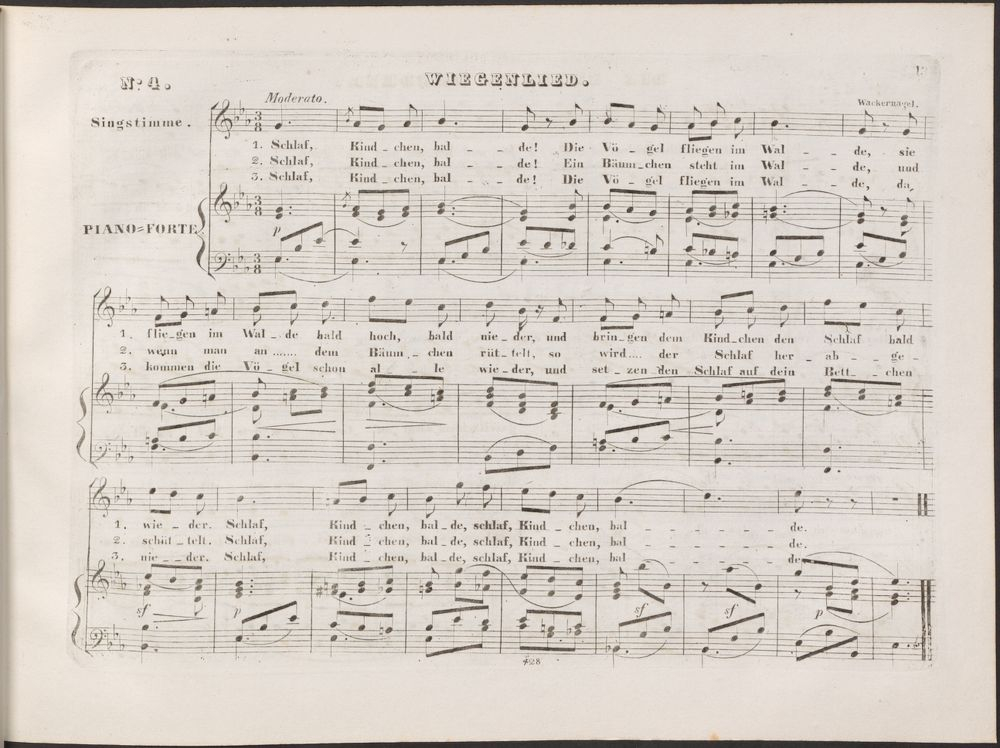 No. 4.
WIEGENLIED.
13
Moderato.
Wackernagel.
Singstimme.
1. Schlaf, Kind_chen, bal _ _ de! Die Vö_gel fliegen im Wal _ _ de, sie
2. Schlaf, Kind_chen, bal _ _ de! Ein Bäum_chen steht im Wal _ _ de, und
3. Schlaf, Kind_chen, bal _ _ de! Die Vö_gel fliegen im Wal _ _ de, da
PIANO=FORTE
p
1. flie_gen im Wal_de bald hoch, bald nie_der, und brin_gen dem Kind_chen den Schlaf bald
2. wenn man an ....... dem Bäum_chen rüt_telt, so wird.... der Schlaf her_ab_ge_
3. kommen die Vö_gel schon al_le wie_der, und set_zen den Schlaf auf dein Bett_chen
1. wie_der. Schlaf, Kind_chen, bal_de, schlaf, Kind_chen, bal _ _ _ _ _ de.
2. schüt_telt. Schlaf, Kind_chen, bal_de, schlaf, Kind_chen, bal _ _ _ _ _ de.
3. nie_der. Schlaf, Kind_chen, bal_de, schlaf, Kind_chen, bal _ _ _ _ _ de.
sf p sf sf p
428